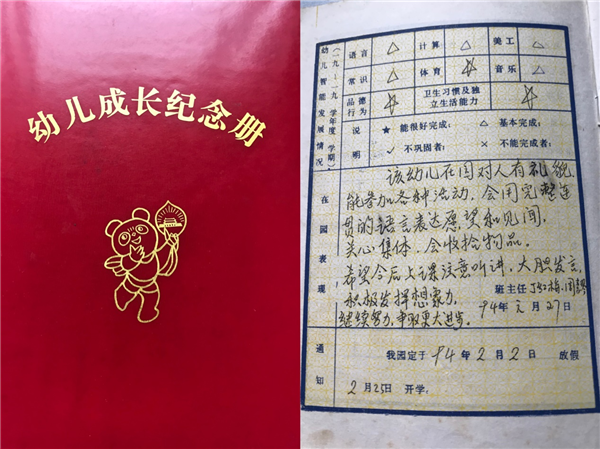 幼儿成长纪念册
幼儿智能发展情况
(一九 一一九 学年度 学期)
语言 △ 计算 △ 美工 △
常识 △ 体育 ☆ 音乐 △
品德行为 ☆ 卫生习惯及独立生活能力 ☆
说明
★ 能很好完成: △ 基本完成:
✓ 不巩固者: × 不能完成者:
在园表现
该幼儿在园对人有礼貌,
能参加各种活动,会用完整连
贯的语言表达愿望和见闻,
关心集体,会收捡物品。
希望今后上课注意听讲,大胆发言,
积极发挥想象力,
继续努力,争取更大进步。
班主任
94年元月27日
通知
我园定于94年2月2日 放假
2月25日 开学。